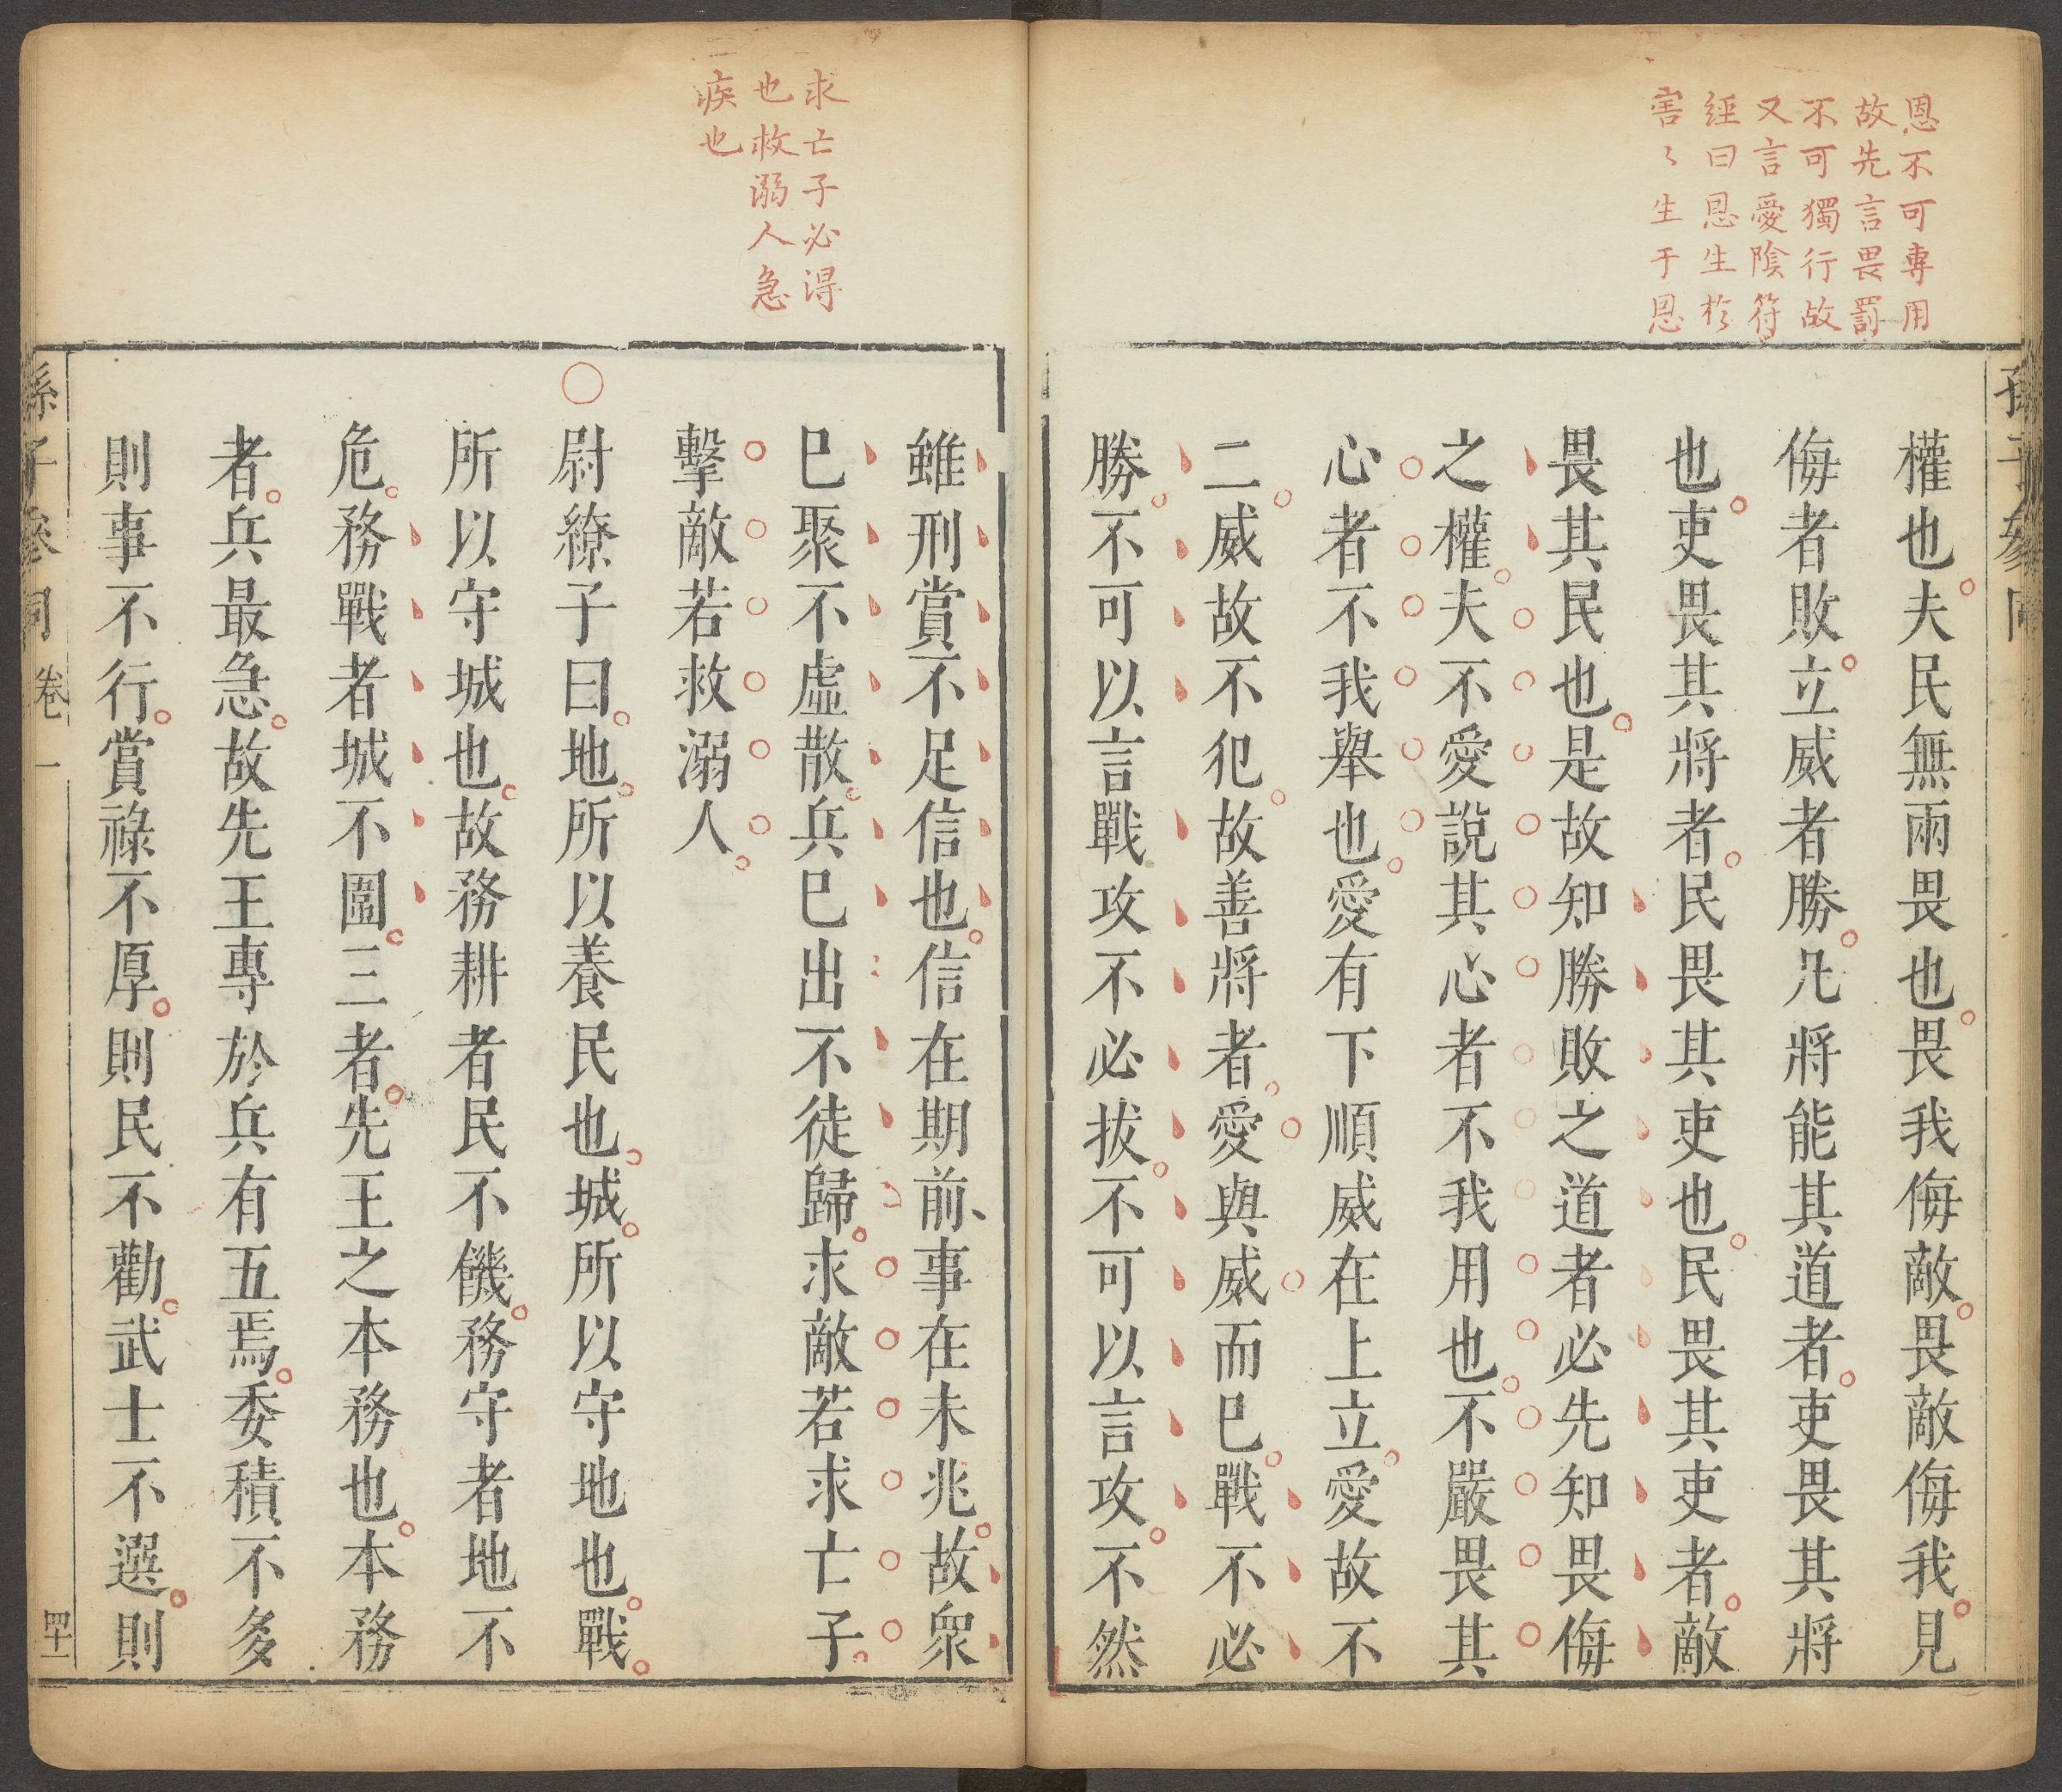 恩不可專用
故先言畏罰
不可獨行故
又言愛陰符
經曰恩生於
害〻生于恩
權也夫民無兩畏也畏我侮敵畏敵侮我見
侮者敗立威者勝凡將能其道者吏畏其將
也吏畏其將者民畏其吏也民畏其吏者敵
畏其民也是故知勝敗之道者必先知畏侮
之權夫不愛說其心者不我用也不嚴畏其
心者不我舉也愛有下順威在上立愛故不
二威故不犯故善將者愛與威而已戰不必
勝不可以言戰攻不必拔不可以言攻不然
求亡子必得
也救溺人急
疾也
雖刑賞不足信也信在期前事在未兆故眾
已聚不虛散兵已出不徒歸求敵若求亡子
擊敵若救溺人
○尉繚子曰地所以養民也城所以守地也戰
所以守城也故務耕者民不饑務守者地不
危務戰者城不圍三者先王之本務也本務
者兵最急故先王專於兵有五焉委積不多
則事不行賞祿不厚則民不勸武士不選則
孫子參同 卷一 四十一